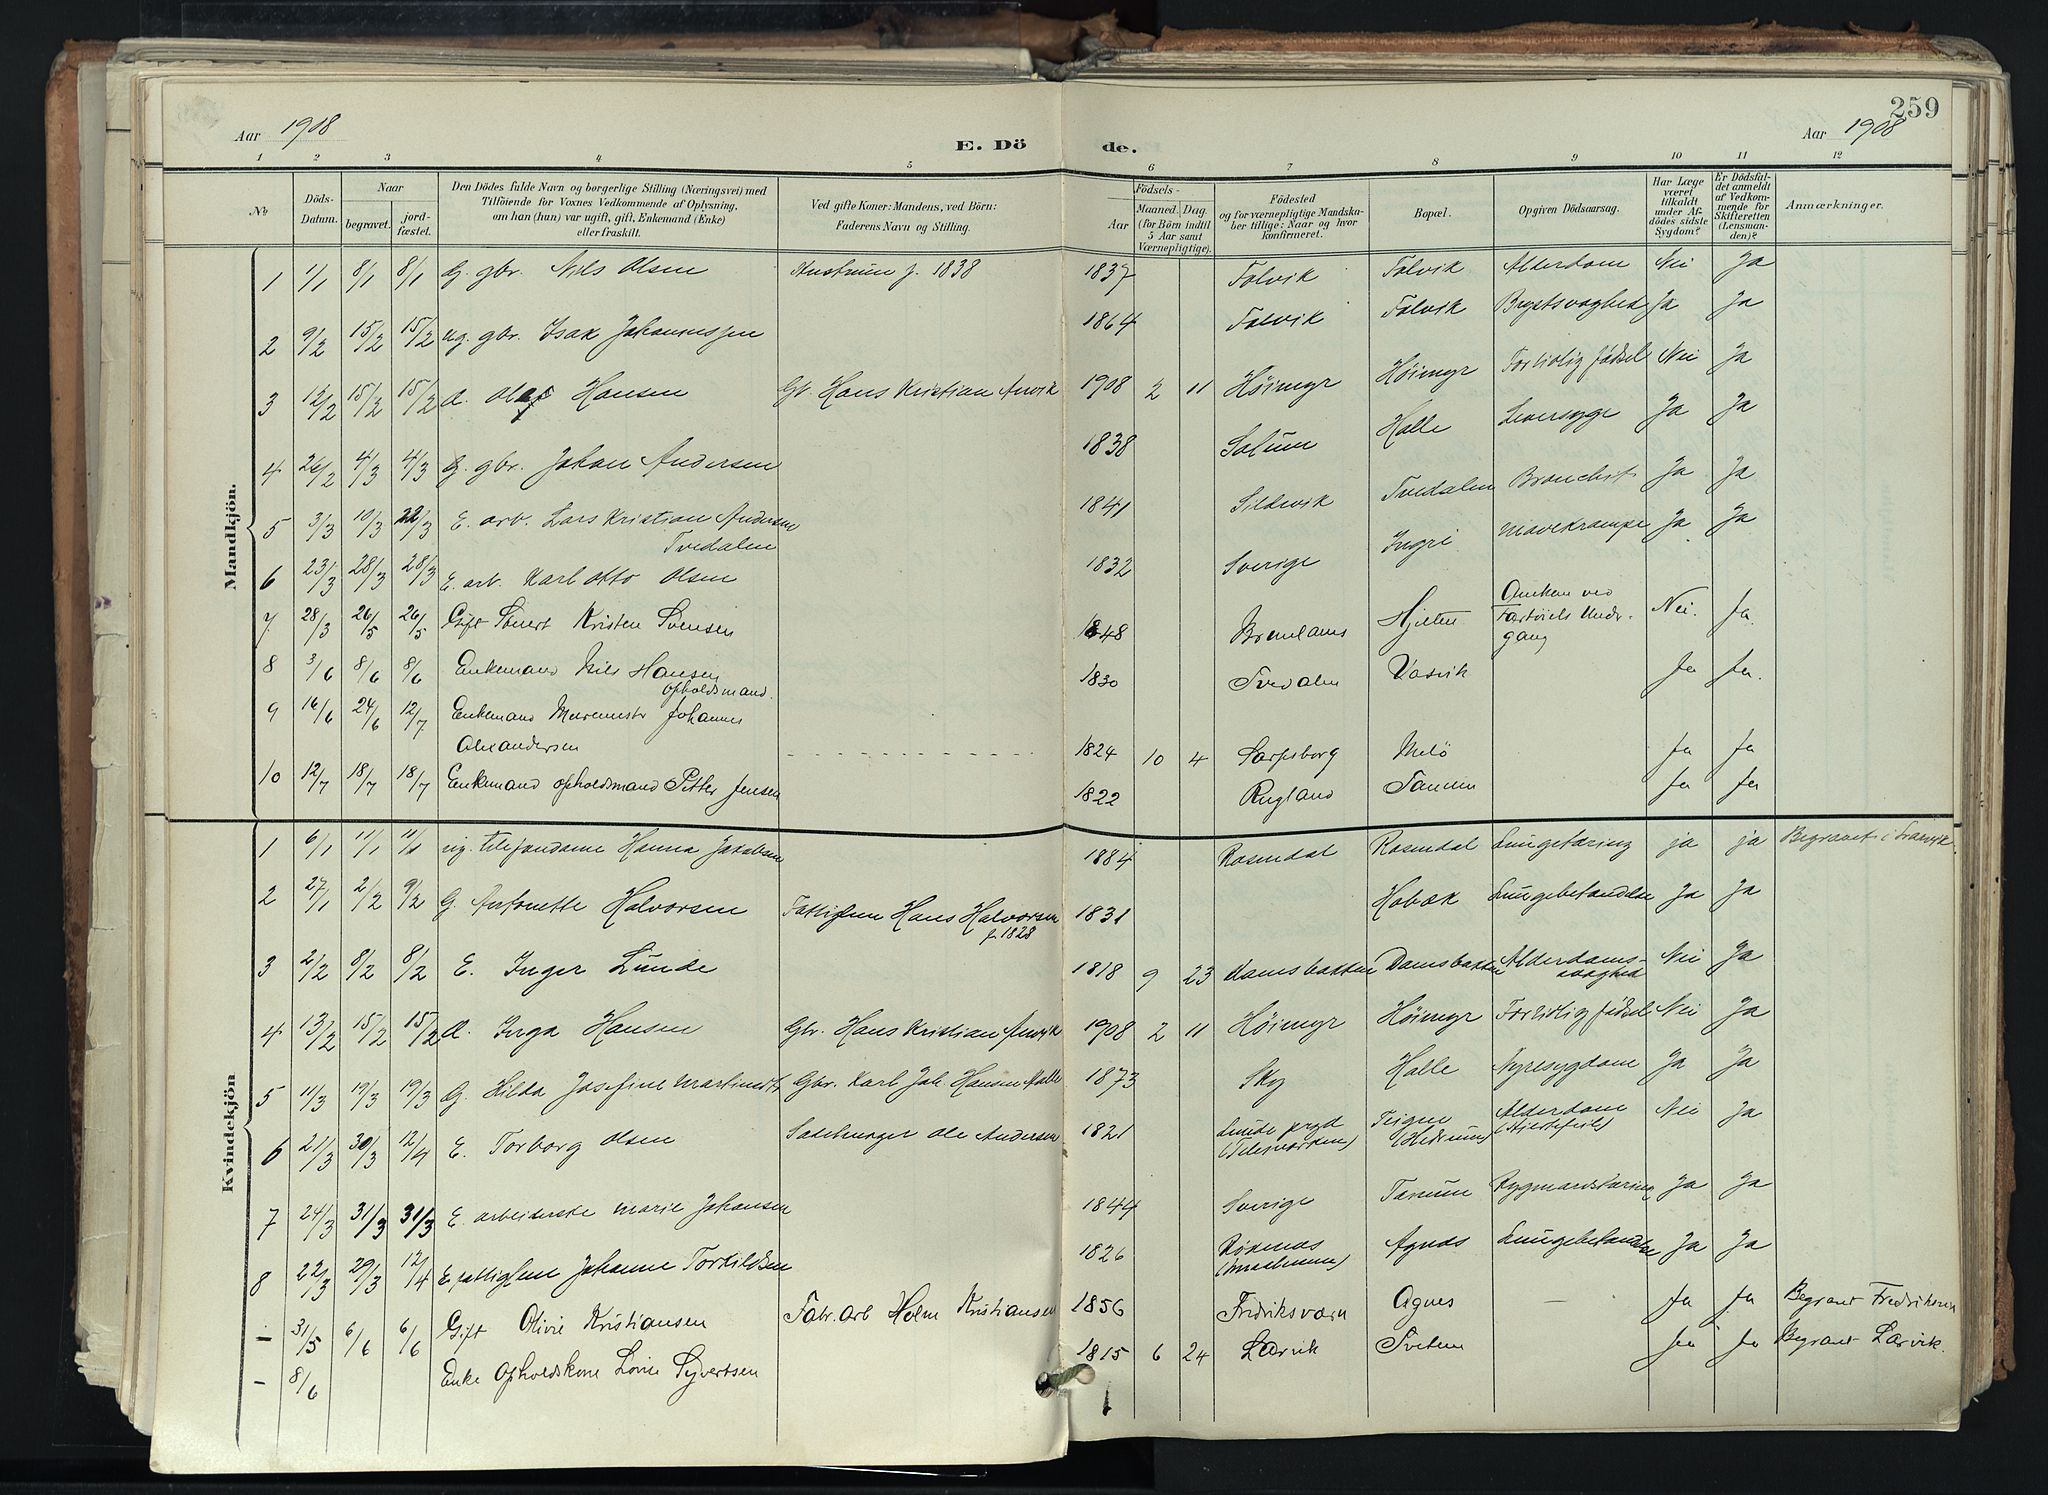 259
Aar 1908
E. Dö
de.
Aar 1908
1 2 3 4 5 6 7 8 9 10 11 12
No
Döds-
Datum.
Naar
begravet.
jord-
fæstet.
Den Dödes fulde Navn og borgerlige Stilling (Næringsvei) med
Tilföiende for Voxnes Vedkommende af Oplysning,
om han (hun) var ugift, gift, Enkemand (Enke)
eller fraskilt.
Ved gifte Koner: Mandens, ved Börn:
Faderens Navn og Stilling.
Födsels-
Aar
Maaned. Dag.
(for Börn indtil
5 Aar samt
Værnepligtige).
Födested
og for værnepligtige Mandska-
ber tillige: Naar og hvor
konfirmeret.
Bopæl.
Opgiven Dödsaarsag.
Har Læge
været
tilkaldt
under Af-
dödes sidste
Sygdom?
Er Dödsfal-
det anmeldt
af Vedkom-
mende for
Skifteretten
(Lensman-
den)?
Anmærkninger.
Mandkjön.
1 1/1 8/1 8/1 G. gbr. Nils Olsen Hustruen f. 1838 1837 Folvik Folvik Alderdom Nei Ja
2 9/2 15/2 15/2 ug. gbr. Isak Johannessen 1864 Folvik Folvik Brystsvaghed Ja Ja
3 12/2 15/2 15/2 d. Olaf Hansen Gb. Hans Kristian Anvik 1908 2 11 Höimyr Höimyr Fortidlig födsel Nei Ja
4 26/2 4/3 4/3 G. gbr. Johan Andersen 1838 Solum Halle Leversyge Ja Ja
5 3/3 10/3 22/3 E. arb. Lars Kristian Andersen
Tvedalen 1841 Sildevik Tvedalen Bronchit Ja Ja
6 23/3 28/3 28/3 E. arb. Karl Otto Olsen 1832 Sverige Ingri Mavekrampe Ja Ja
7. 28/3 26/5 26/5 Gift Kristen Svensen 1848 Hjelten Omkom ved
Fartöiets Under-
gang Nei. Ja.
8 3/6 8/6 8/6 Enkemand Nils Hansen
opholdsmand. 1830 Tvedalen Vasvik Ja Ja.
9 16/6 24/6 12/7 Enkemand Murmester Johannes
Alexandersen 1824 10 4 Sarpsborg Melö Ja Ja
10 12/7 18/7 18/7 Enkemand opholdsmand Petter Jensen 1822 Rugland Tanum Ja Ja
Kvindekjön
1 6/1 11/1 11/1 ug. telefondame Hanna Jakobsen 1884 Rosendal Rosendal Lungetæring ja ja Begravet i
2 27/1 2/2 9/2 G. Antonette Halvorsen Fattiglem Hans Halvorsen
f. 1828 1831 Hobæk Lungebetændelse Ja Ja
3 2/2 8/2 8/2 E. Inger Lunde 1818 9 23 Damsbakken Damsbakken Alderdoms-
svaghed Nei Ja
4 13/2 15/2 15/2 d. Inga Hansen Gbr. Hans Kristian Anvik 1908 2 11 Höimyr Höimyr Fortidlig födsel Nei Ja
5 11/3 19/3 19/3 G. Hilda Josefine Martinsdt Gbr. Karl Joh. Hansen Halle 1873 Sky Halle Nyresygdom Ja Ja
6 21/3 30/3 12/4 E. Torborg Olsen Ole Andersen 1821 Lunde prgd
(Telemarken) Teigne
(Hedrum) Alderdom
(Hjertefeil) Nei Ja
7 24/3 31/3 31/3 E. arbeiderske Marie Johansen 1844 Sverige Tanum Rygmarvstæring Ja Ja
8 22/3 29/3 12/4 E. fattiglem Johanne Torkildsen 1826 Agnes Lungebetændelse Ja Ja
- 31/5 6/6 6/6 Gift Olivie Kristiansen Fabr. arb Holm Kristiansen 1856 Fredriksværn Agnes — Ja Ja Begravet Fredriksværn
- 8/6 Enke opholdskone Lovise Syvertsen 1815 6 24 Larvik Tveten Ja Ja Begravet Larvik.